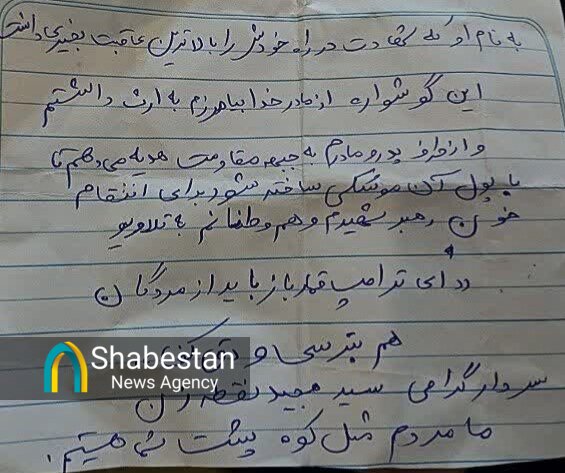 به نام او که شهادت در راه خودش را بالاترین عاقبت بخیری دانست
این گوشواره از مادر خدا بیامرزم به ارث داشتم
و از طرف پدر و مادرم به جبهه مقاومت هدیه می دهم تا
با پول آن موشکی ساخته شود برای انتقام
خون رهبر شهیدم و هم وطنانم به تلاویو
ای ترامپ قمارباز باید از مردگان
هم بترسی و
سردار گرامی سید مجید نقطه زن
ما مردم مثل کوه پشت شما هستیم.
Shabestan
News Agency